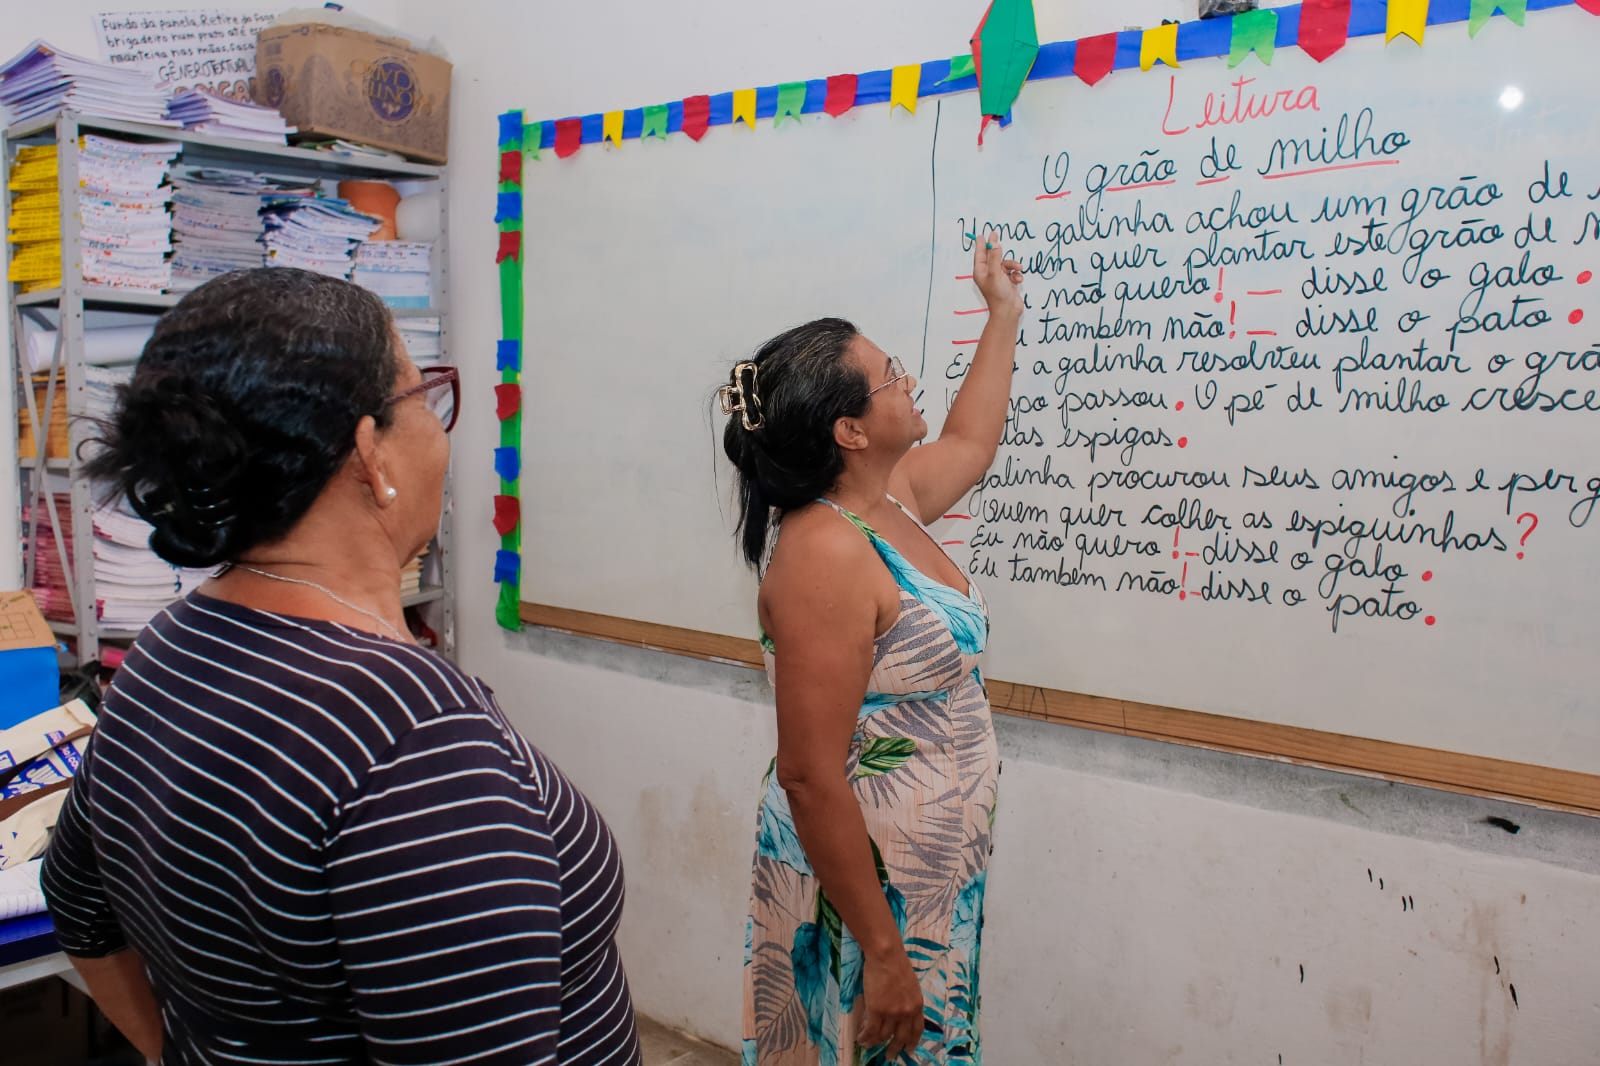 fundo da panela. Retire do fogo
brigadeiro num prato até es
manteiga nas mãos, faça
GÊNERO TEXTUAL:
Leitura
O grão de milho
Uma galinha achou um grão de
uem quer plantar este grão de
não quero! _ disse o galo.
também não! _ disse o pato.
a galinha resolveu plantar o grã
mpo passou. O pé de milho cresce
tas espigas.
galinha procurou seus amigos e perg
_ Quem quer colher as espiguinhas?
_ Eu não quero! _ disse o galo.
_ Eu também não! _ disse o pato.